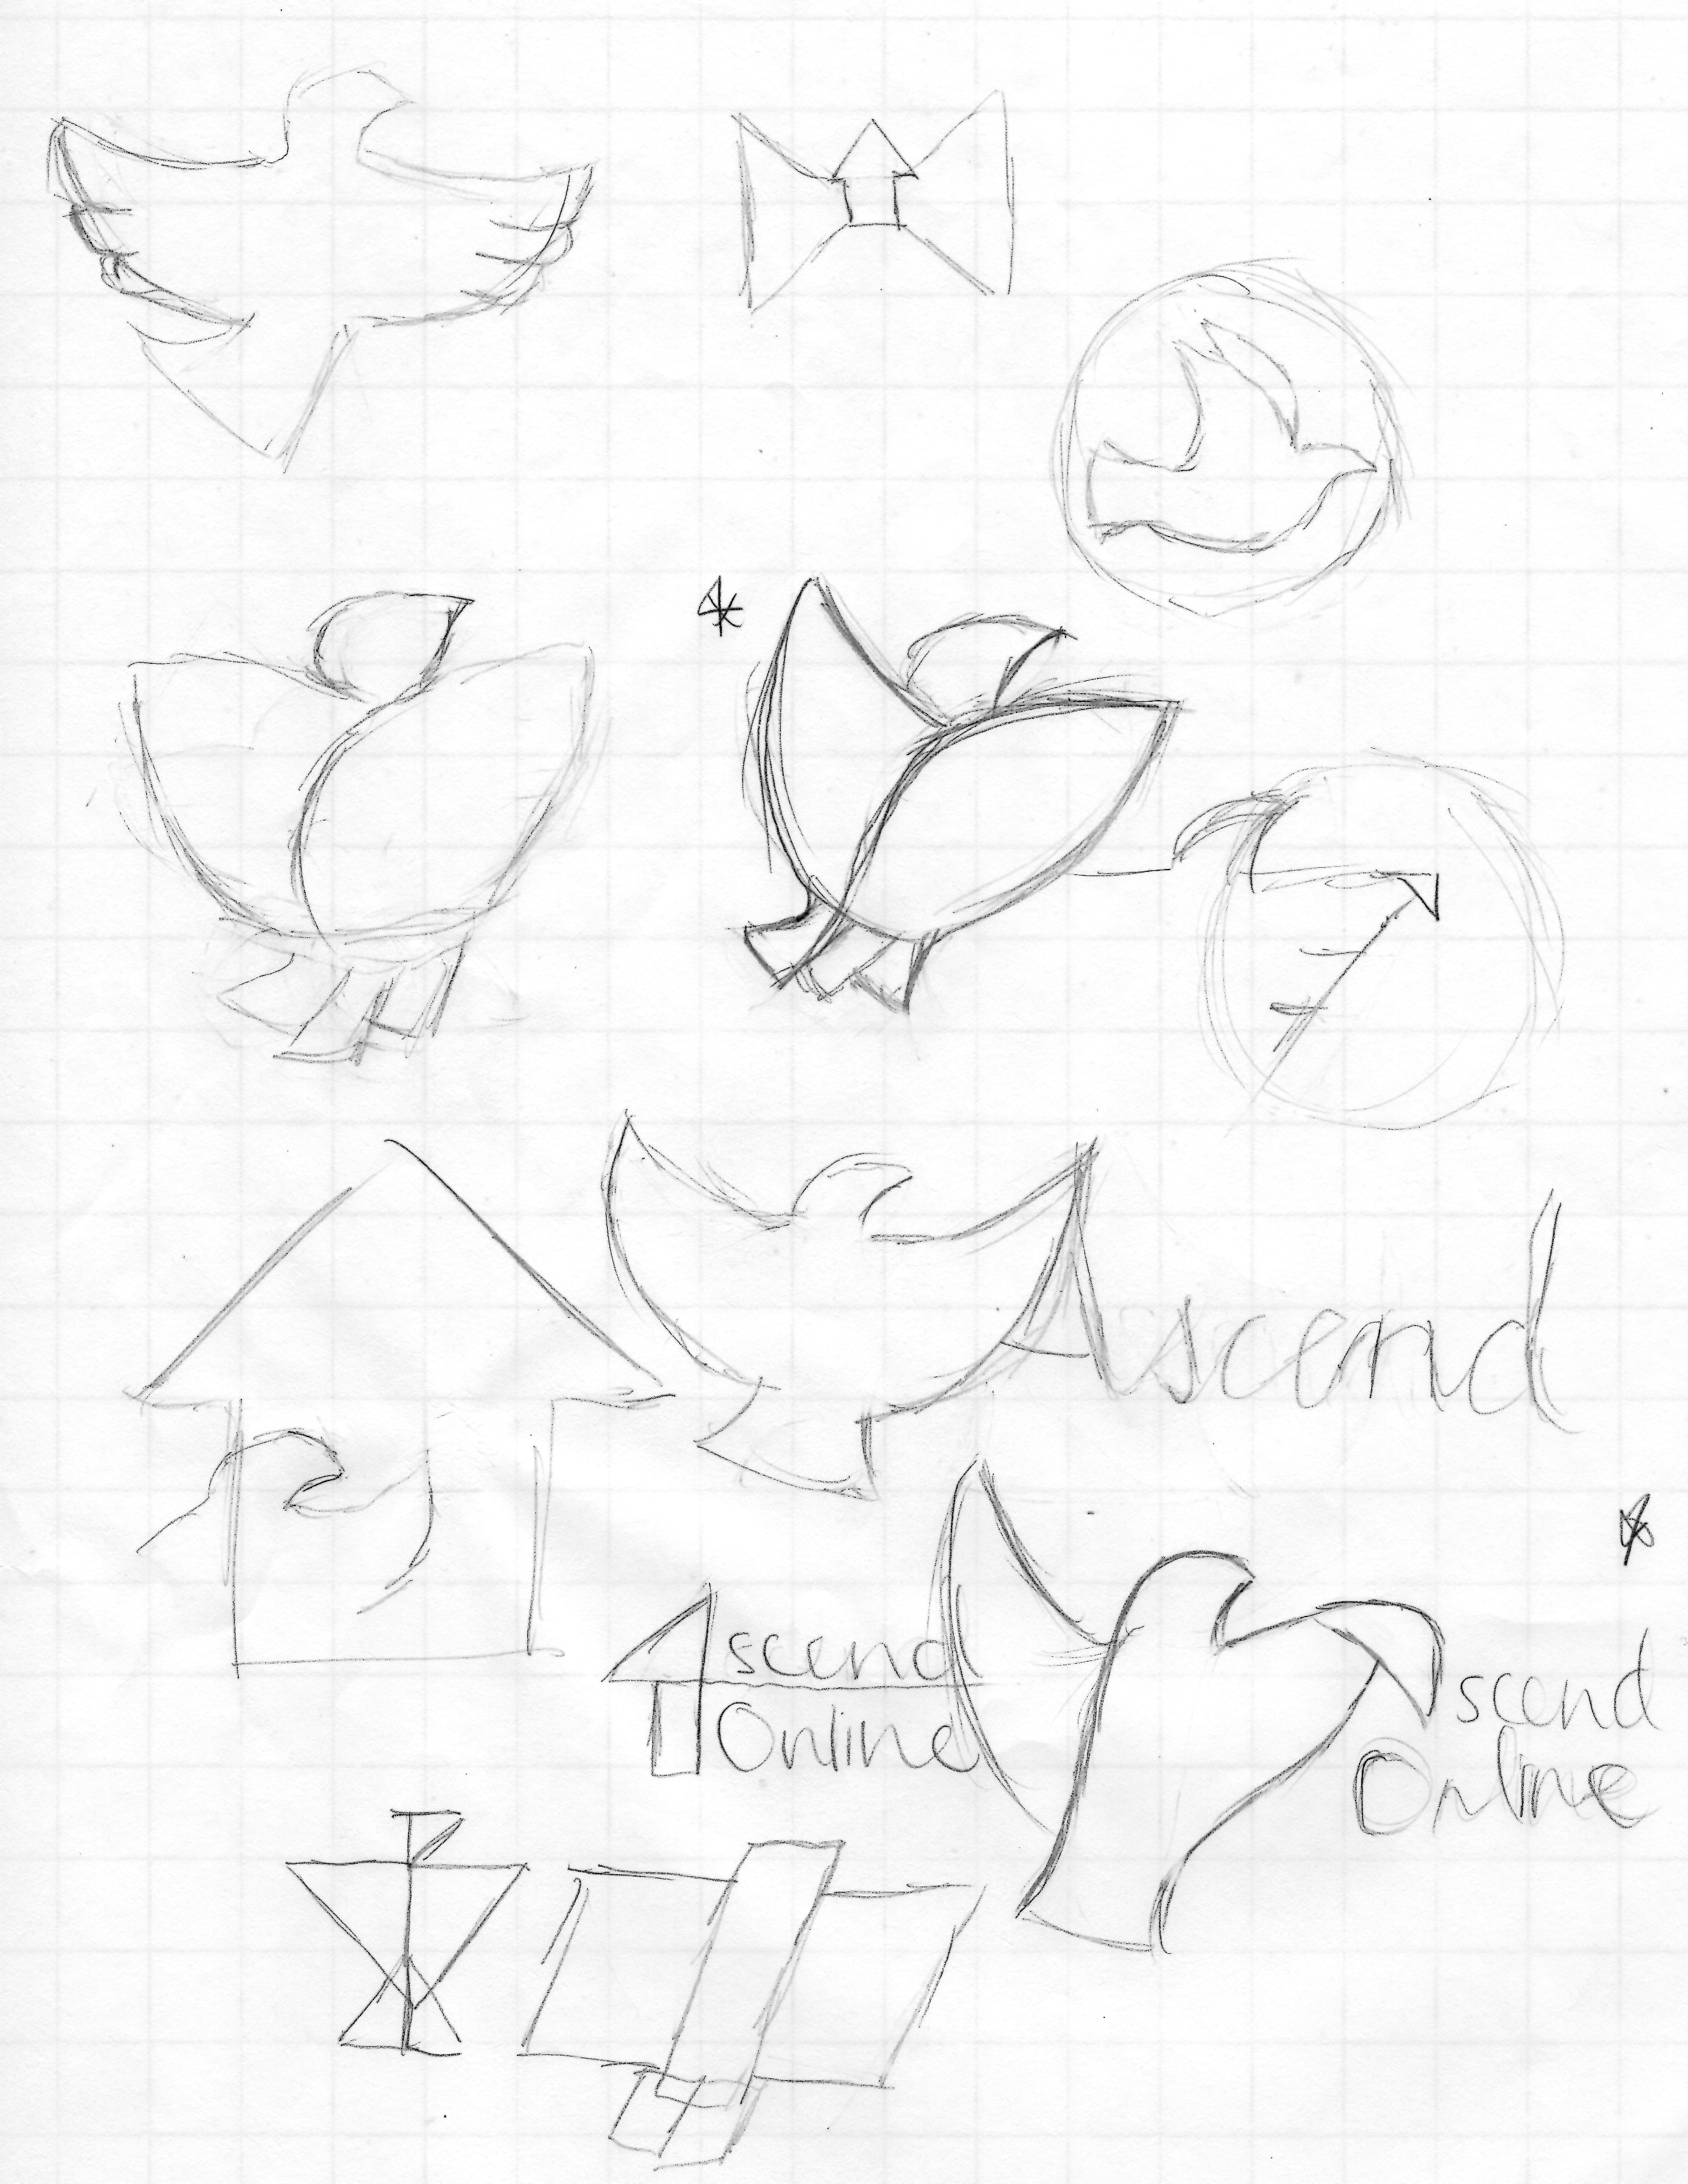 Ascend
Ascend
Online
Ascend
Online